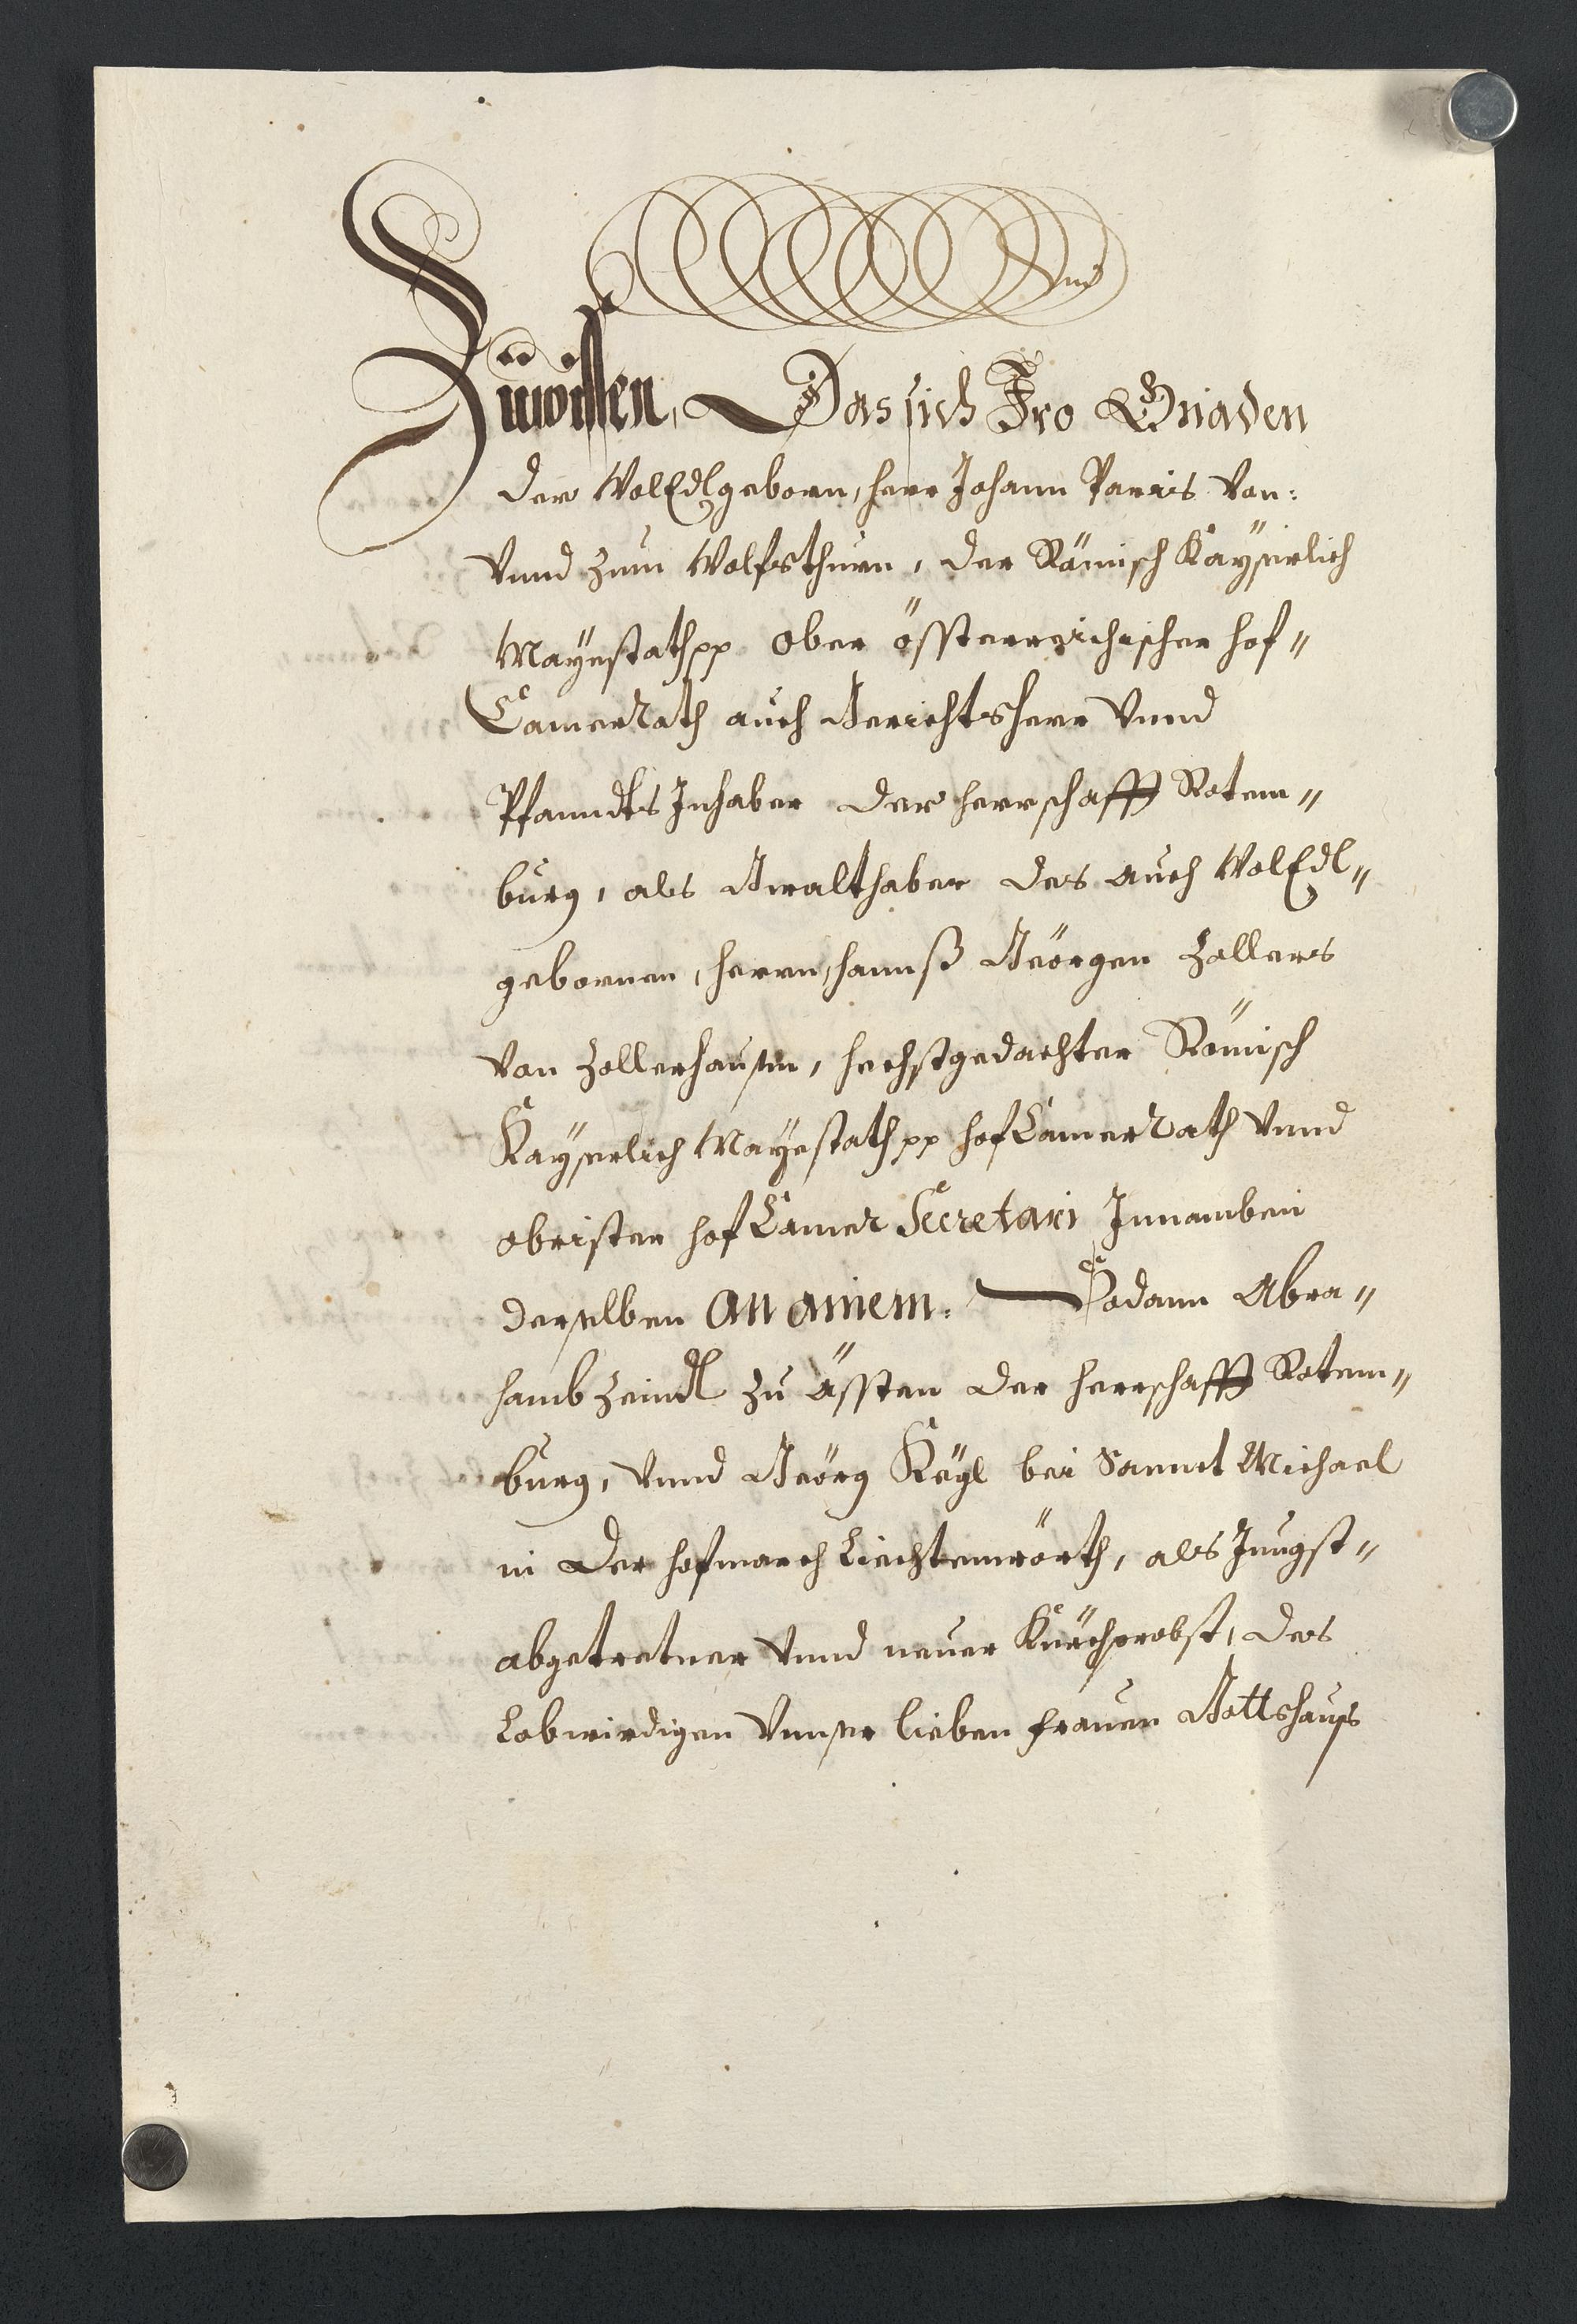 Zuwissen, Das sich Iro Gnaden
der WolEdlgeborn, herr Johann Parris von:
vnnd zum Wolfsthurn, der Römisch Kayserlich
Mayestath pp ober össterreichischer hof„
CamerRath auch Gerichtsherr vnnd
Pfanndts Inhaber der herrschafft Rotem„
burg, als Gwalthaber des auch WolEdl„
gebornen, herrn, hannß Geörgen Zollers
von Zollerhausen, hechstgedachter Römisch
Kayserlich Mayestath pp hofCamerRath vnnd
obrister hofCamer Secretari Innamben
derselben an ainem: Sodann Abra„
hamb Zeindl zu Össten der herrschafft Rotem„
burg, vnnd Geörg Kögl bei Sannct Michael
in der hofmarch Liechtenwörth, als Jungst„
abgetretner vnnd neuer Kürchprobst, des
Lobwirdigen vnnser lieben frauen Gottshauss